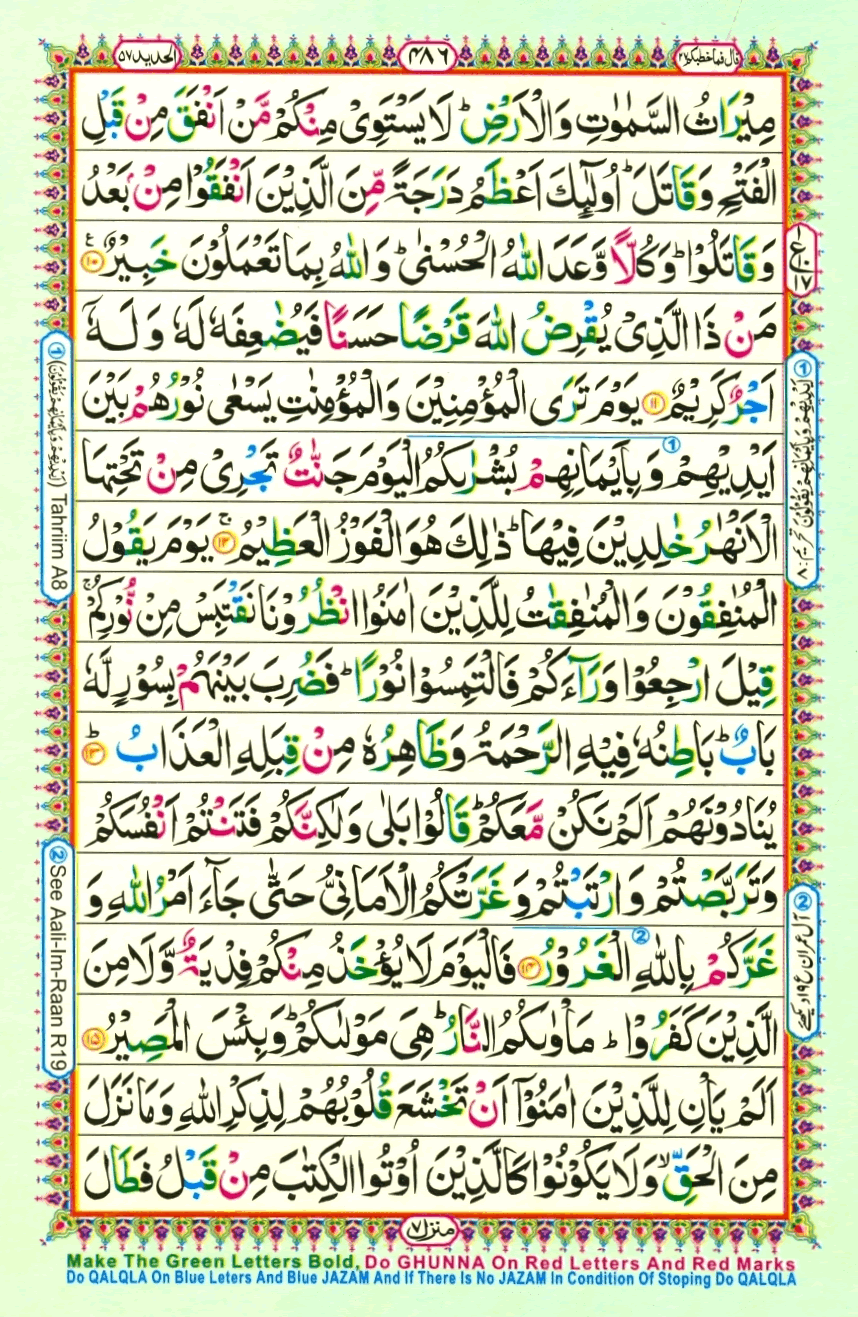 قال فما خطبكم ٢٧
٤٨٦
الحديد ٥٧
مِيْرَاثُ السَّمٰوٰتِ وَالْاَرْضِ ؕ لَا يَسْتَوِىْ مِنْكُمْ مَّنْ اَنْفَقَ مِنْ قَبْلِ
الْفَتْحِ وَقَاتَلَ ؕ اُولٰٓئِكَ اَعْظَمُ دَرَجَةً مِّنَ الَّذِيْنَ اَنْفَقُوْا مِنْۢ بَعْدُ
وَقَاتَلُوْا ؕ وَكُلًّا وَّعَدَ اللّٰهُ الْحُسْنٰى ؕ وَاللّٰهُ بِمَا تَعْمَلُوْنَ خَبِيْرٌ ﴿۱۰﴾ ع
مَنْ ذَا الَّذِىْ يُقْرِضُ اللّٰهَ قَرْضًا حَسَنًا فَيُضٰعِفَهٗ لَهٗ وَلَهٗۤ
اَجْرٌ كَرِيْمٌ ﴿۱۱﴾ يَوْمَ تَرَى الْمُؤْمِنِيْنَ وَالْمُؤْمِنٰتِ يَسْعٰى نُوْرُهُمْ بَيْنَ
اَيْدِيْهِمْ وَبِاَيْمَانِهِمْ بُشْرٰىكُمُ الْيَوْمَ جَنّٰتٌ تَجْرِىْ مِنْ تَحْتِهَا
الْاَنْهٰرُ خٰلِدِيْنَ فِيْهَا ؕ ذٰلِكَ هُوَ الْفَوْزُ الْعَظِيْمُ ۚ ﴿۱۲﴾ يَوْمَ يَقُوْلُ
الْمُنٰفِقُوْنَ وَالْمُنٰفِقٰتُ لِلَّذِيْنَ اٰمَنُوا انْظُرُوْنَا نَقْتَبِسْ مِنْ نُّوْرِكُمْ ۚ
قِيْلَ ارْجِعُوْا وَرَآءَكُمْ فَالْتَمِسُوْا نُوْرًا ؕ فَضُرِبَ بَيْنَهُمْ بِسُوْرٍ لَّهٗ
بَابٌ ؕ بَاطِنُهٗ فِيْهِ الرَّحْمَةُ وَظَاهِرُهٗ مِنْ قِبَلِهِ الْعَذَابُ ؕ ﴿۱۳﴾
يُنَادُوْنَهُمْ اَلَمْ نَكُنْ مَّعَكُمْ ؕ قَالُوْا بَلٰى وَلٰكِنَّكُمْ فَتَنْتُمْ اَنْفُسَكُمْ
وَتَرَبَّصْتُمْ وَارْتَبْتُمْ وَغَرَّتْكُمُ الْاَمَانِىُّ حَتّٰى جَآءَ اَمْرُ اللّٰهِ وَ
غَرَّكُمْ بِاللّٰهِ الْغَرُوْرُ ﴿۱۴﴾ فَالْيَوْمَ لَا يُؤْخَذُ مِنْكُمْ فِدْيَةٌ وَّلَا مِنَ
الَّذِيْنَ كَفَرُوْا ؕ مَاْوٰىكُمُ النَّارُ ؕ هِىَ مَوْلٰىكُمْ ؕ وَبِئْسَ الْمَصِيْرُ ﴿۱۵﴾
اَلَمْ يَاْنِ لِلَّذِيْنَ اٰمَنُوْۤا اَنْ تَخْشَعَ قُلُوْبُهُمْ لِذِكْرِ اللّٰهِ وَمَا نَزَلَ
مِنَ الْحَقِّ ۙ وَلَا يَكُوْنُوْا كَالَّذِيْنَ اُوْتُوا الْكِتٰبَ مِنْ قَبْلُ فَطَالَ
① اَيْدِيْهِمْ وَبِاَيْمَانِهِمْ يَقُوْلُوْنَ تحریم : ۸
② آل عمران ع ۱۹ دیکھئے
① (اَيْدِيْهِمْ وَبِاَيْمَانِهِمْ يَقُوْلُوْنَ) Tahriim A8
② See Aali-Im-Raan R19
منزل ٧
Make The Green Letters Bold, Do GHUNNA On Red Letters And Red Marks
Do QALQLA On Blue Leters And Blue JAZAM And If There Is No JAZAM In Condition Of Stoping Do QALQLA